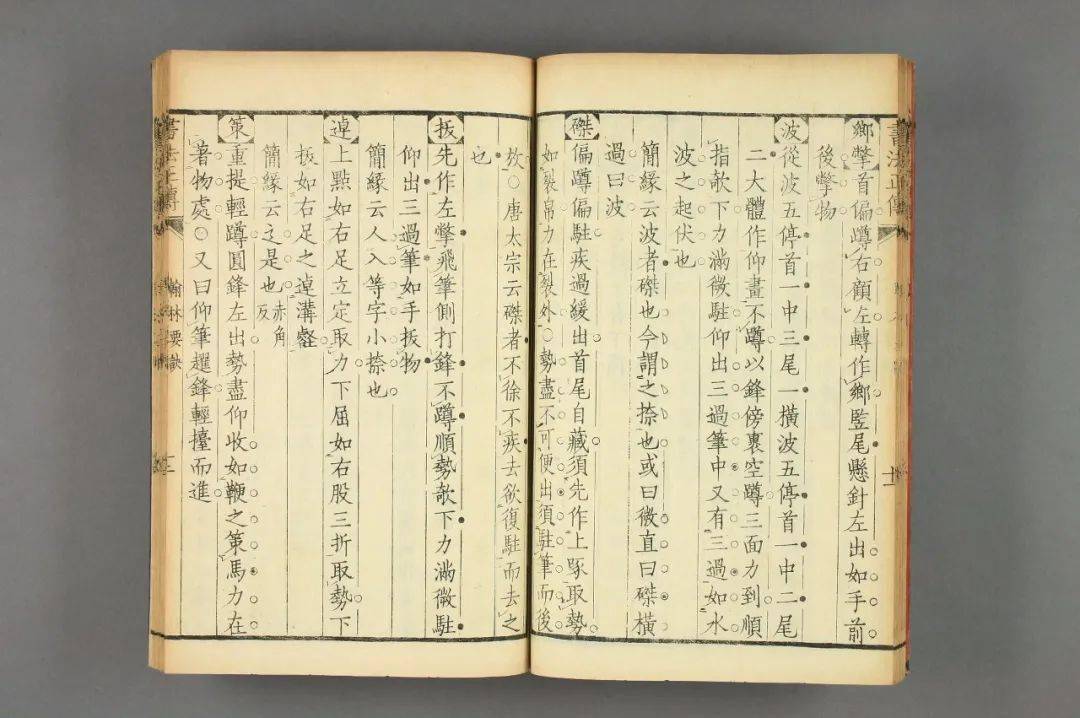 書法正傳
十一
鄉撆首偏蹲右顧左轉作鄉監尾懸針左出如手前
後撆物
波從波五停首一中三尾一橫波五停首一中二尾
二大體作仰畫不蹲以鋒傍裹空蹲三面力到順
指欹下力滿微駐仰出三過筆中又有三過如水
波之起伏也
簡緣云波者磔也今謂之捺也或曰微直曰磔橫
過曰波
磔偏蹲偏駐疾過緩出首尾自藏須先作上啄取勢
如裂帛力在裂外○勢盡不可便出須駐筆而後
放○唐太宗云磔者不徐不疾去欲復駐而去之
也
扳先作左撆飛筆側打鋒不蹲順勢欹下力滿微駐
仰出三過筆如手扳物
簡緣云人入等字小捺也
趠上點如右足立定取力下屈如右股三折取勢下
扳如右足之趠溝壑
簡緣云辶是也赤角
反
策重提輕蹲圓鋒左出勢盡仰收如鞭之策馬力在
著物處○又曰仰筆趯鋒輕擡而進
書法正傳
翰林要訣